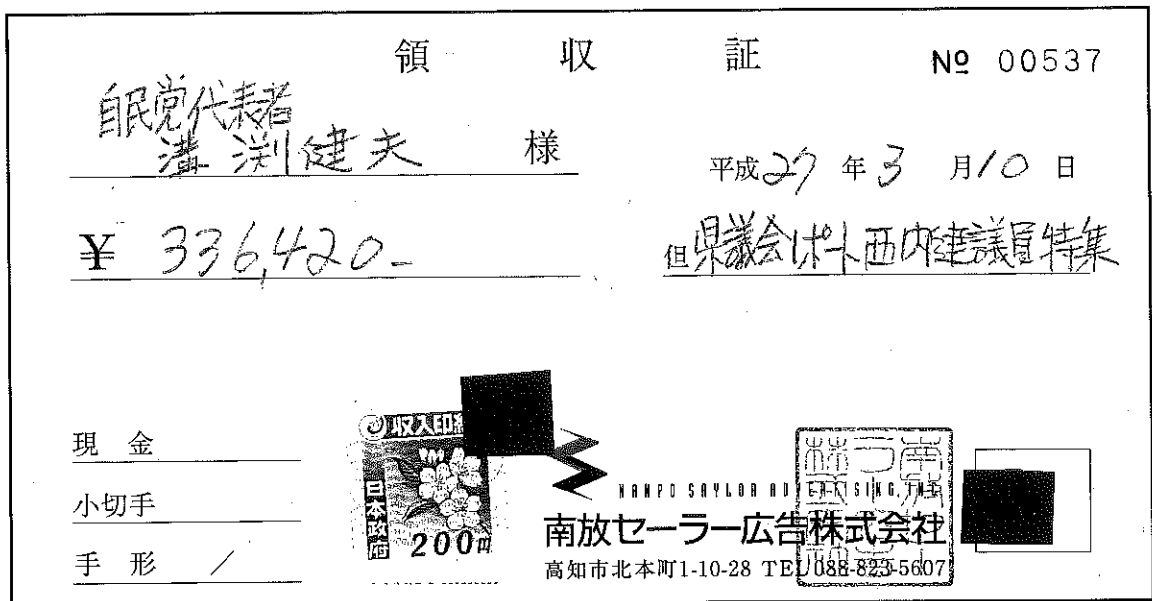 領収証
№ 00537
自民党代表者
溝渕健夫 様
平成27年3月10日
¥ 336,420-
但県議会レポート西内健議員特集
現金
小切手
手形 /
収入印紙
日本政府
200円
NANPO SAYLOR ADVERTISING, INC.
南放セーラー広告株式会社
高知市北本町1-10-28 TEL 088-823-5607